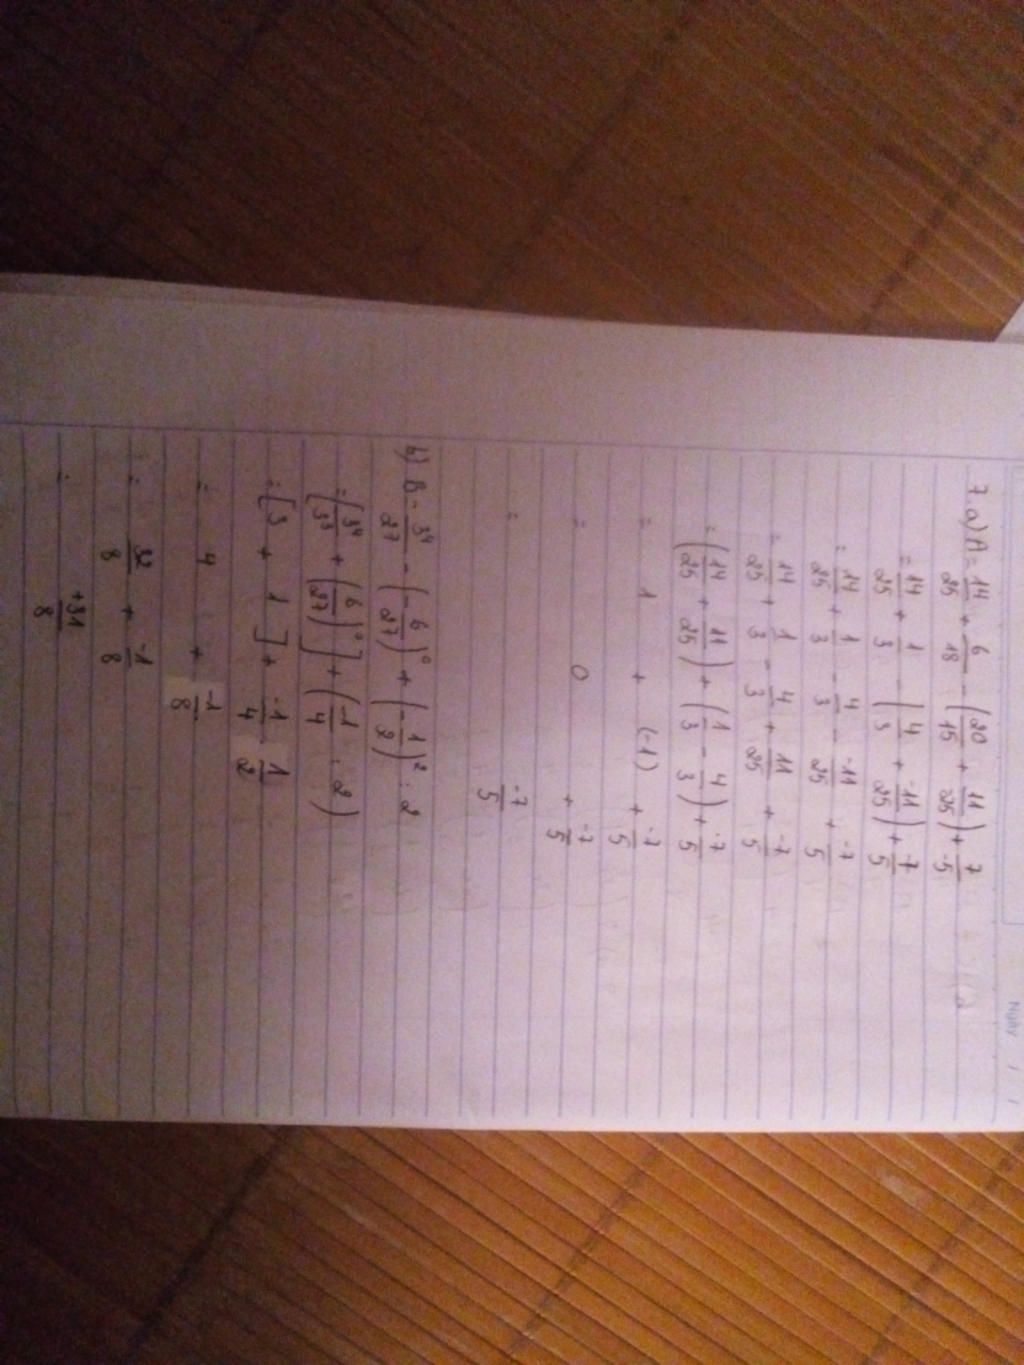 Ngày / /
7. a) A = 14/25 + 6/18 - (20/15 + 11/25) + 7/-5
= 14/25 + 1/3 - (4/3 + -11/25) + 7/5
= 14/25 + 1/3 - 4/3 - -11/25 + -7/5
= 14/25 + 1/3 - 4/3 + 11/25 + -7/5
= (14/25 + 11/25) + (1/3 - 4/3) + -7/5
= 1 + (-1) + -7/5
= 0 + -7/5
= -7/5
b) B = 3⁴/27 - (-6/27)⁰ + (-1/2)² : 2
= [3⁴/3³ + (6/27)⁰] + (-1/4 : 2)
= [3 + 1] + -1/4 . 1/2
= 4 + -1/8
= 32/8 + -1/8
= +31/8